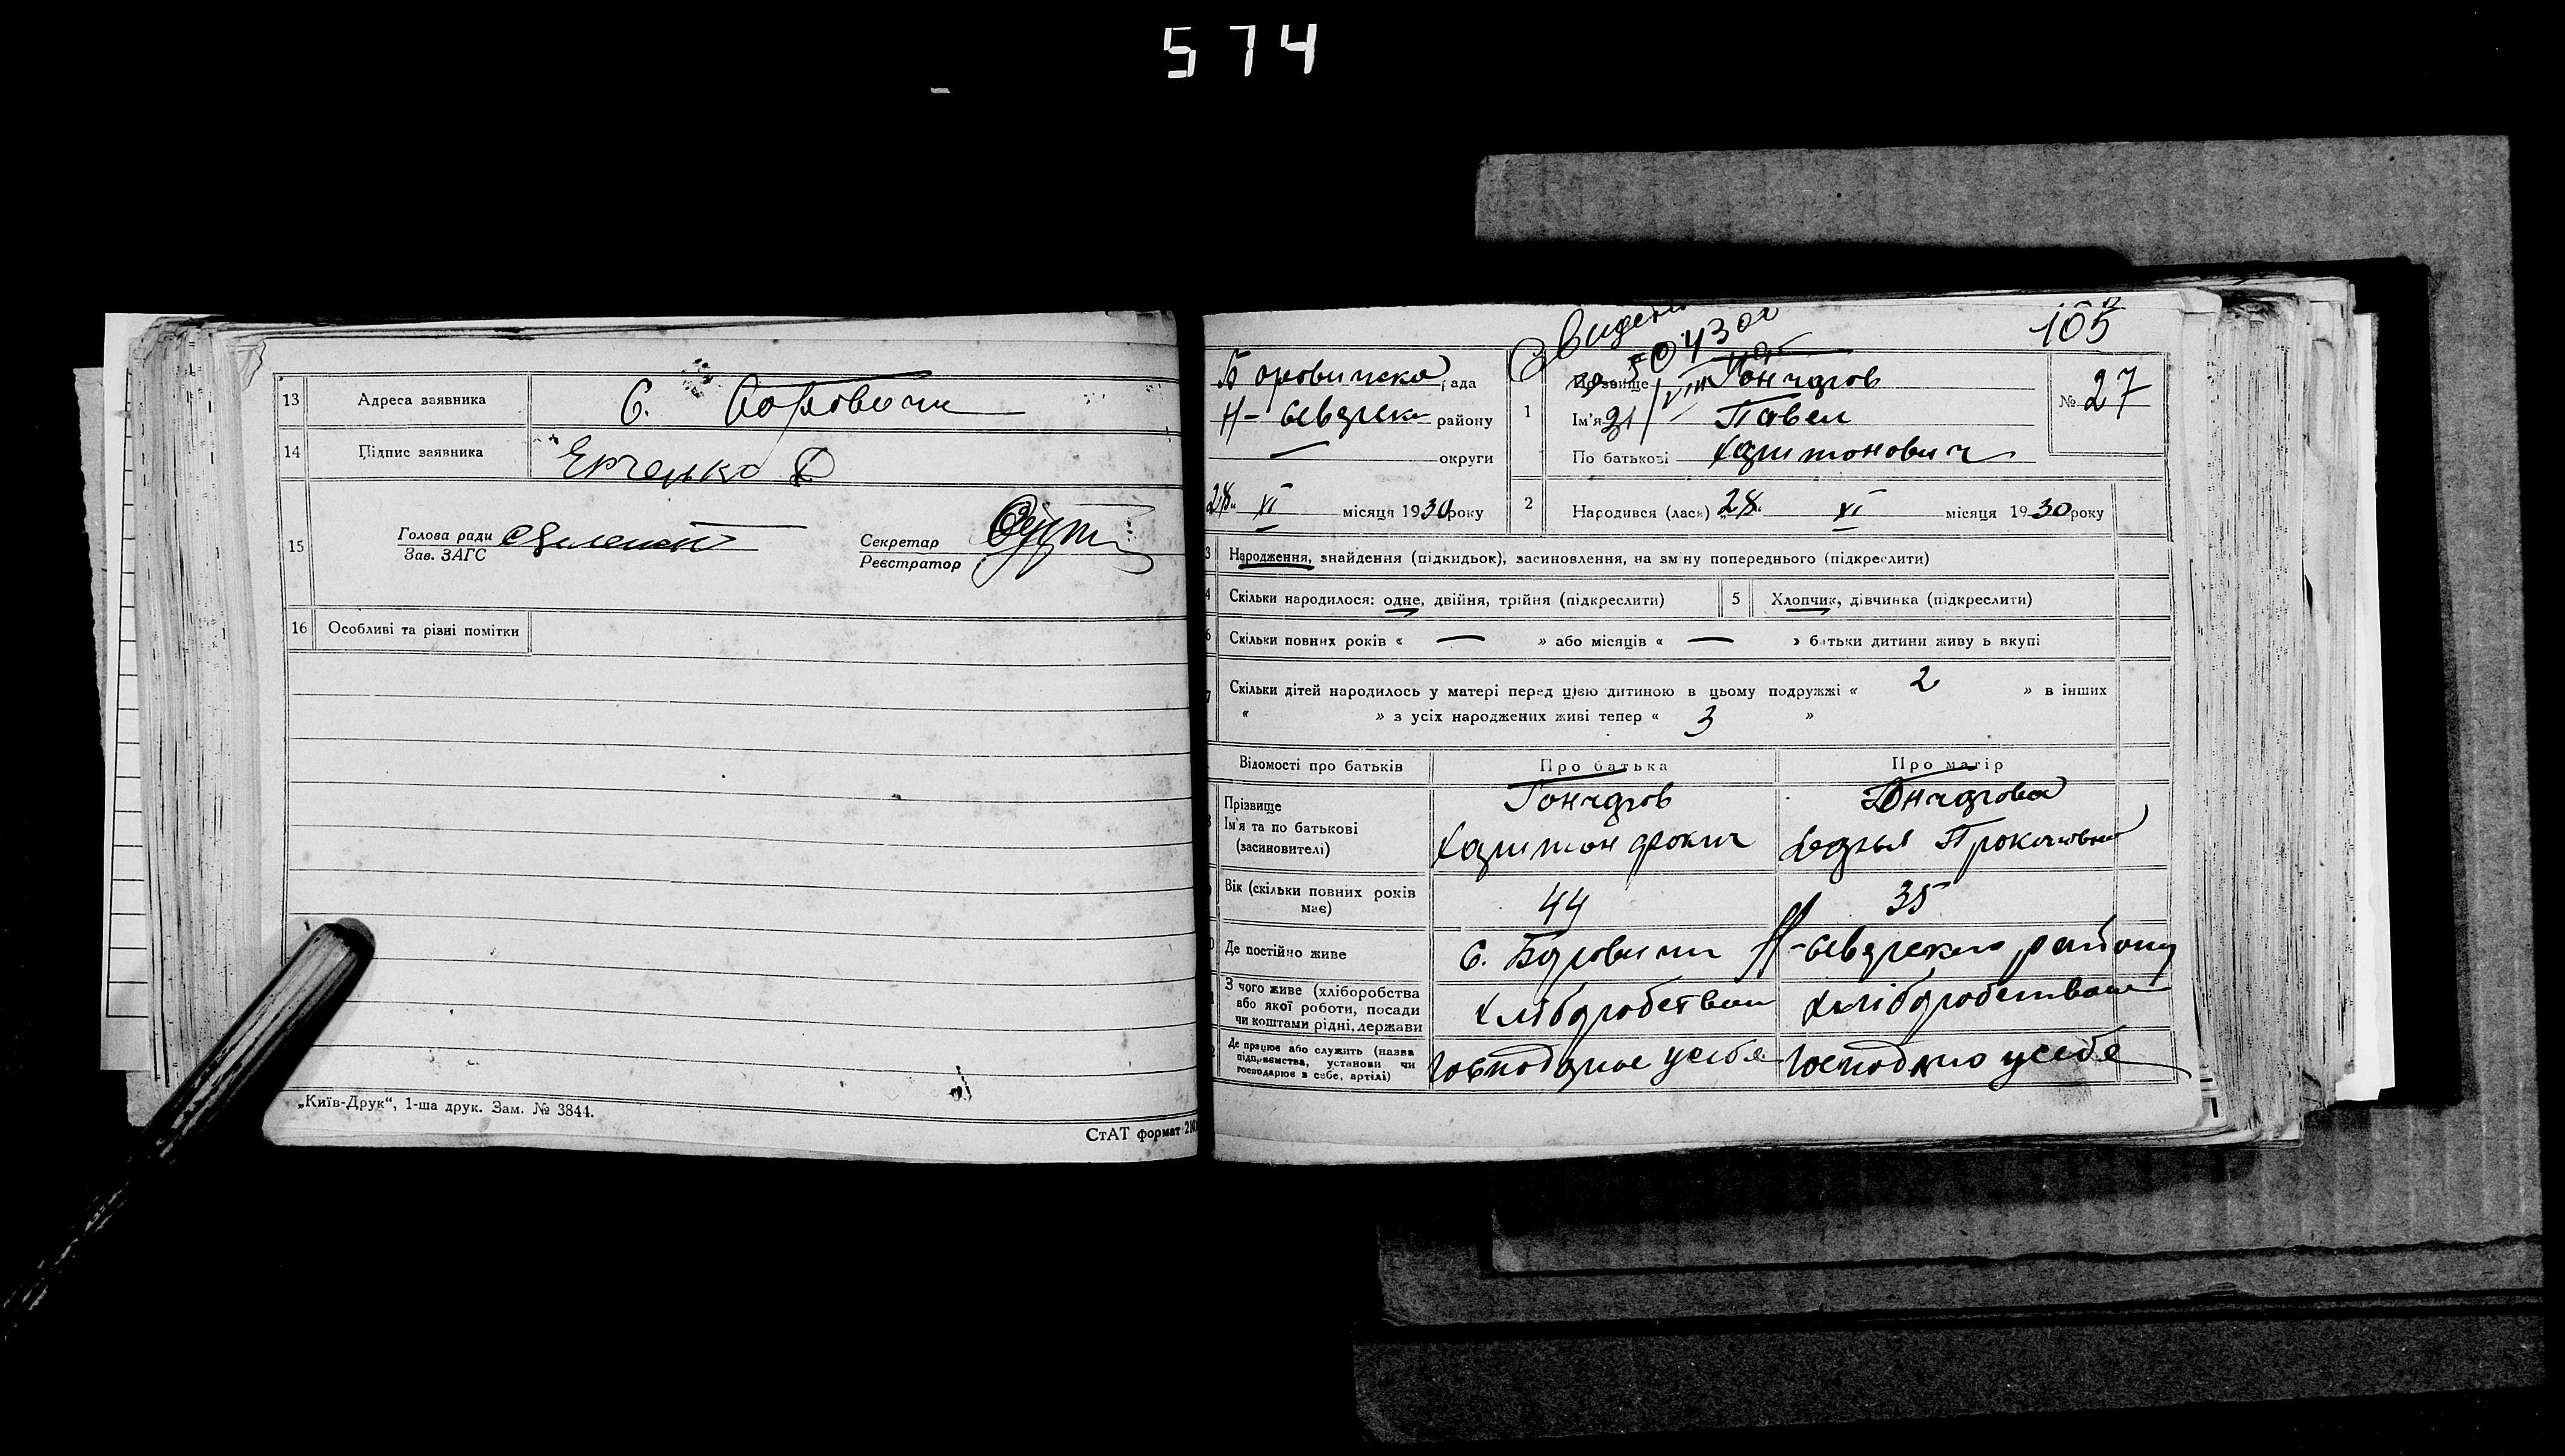 574
13 Адреса заявника С. Боровичи
14 Підпис заявника
15 Голова ради
Зав. ЗАГС
Секретар
Реєстратор
16 Особливі та різні помітки
„Київ-Друк“, 1-ша друк. Зам. № 3844.
СтАТ формат
105
Боровичска рада
Н-сіверск району
— округи
28 XI місяця 1930 року
1 Прізвище Гончаров
Ім'я Павел
По батькові Харитонович
№ 27
2 Народився (лась) 28 XI місяця 1930 року
3 Народження, знайдення (підкидьок), засиновлення, на зміну попереднього (підкреслити)
4 Скільки народилося: одне, двійня, трійня (підкреслити)
5 Хлопчик, дівчинка (підкреслити)
6 Скільки повних років « — » або місяців « — » батьки дитини живуть вкупі
7 Скільки дітей народилось у матері перед цією дитиною в цьому подружжі « 2 » в інших
« » з усіх народжених живі тепер « 3 »
Відомості про батьків Про батька Про матір
Прізвище Гончаров Гончарова
Ім'я та по батькові
(засиновителі) Харитон
Вік (скільки повних років
має) 44 35
Де постійно живе С. Боровичи Н-сіверского району
З чого живе (хліборобства
або якої роботи, посади
чи коштами рідні, держави
хліборобством хліборобством
Де працює або служить (назва
підприємства, установи чи
господарює в себе, артілі)
господарює у себе у себе